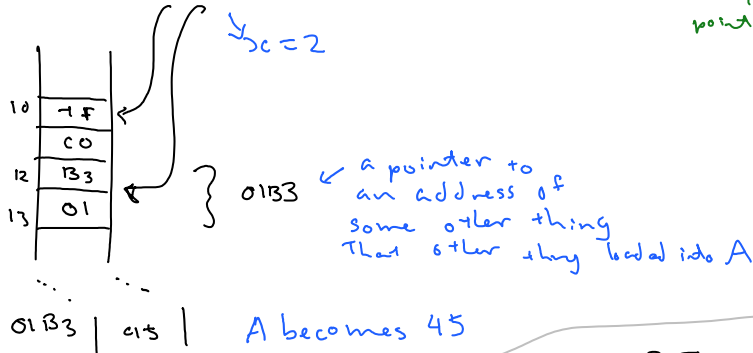 x=2
point
10 7F
C0
12 B3
13 01
01B3
a pointer to
an address of
some other thing
That other thing loaded into A
01B3 45
A becomes 45